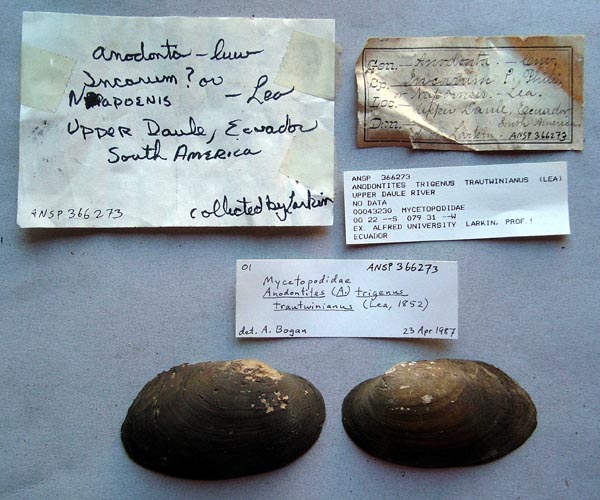 Anodonta - Cuv
Incarum? or
Napoenis - Lea
Upper Daule, Ecuador
South America
ANSP 366273
collected by Larkin
Gen. Anodonta. - Cuv.
Sp. Incarum Phil.
Napoensis. - Lea.
Loc. Upper Daule, Ecuador
South America.
Don. Larkin. ANSP 366273
ANSP 366273
ANODONTITES TRIGENUS TRAUTWINIANUS (LEA)
UPPER DAULE RIVER
NO DATA
00043230 MYCETOPODIDAE
00 22 --S 079 31 --W
EX. ALFRED UNIVERSITY LARKIN, PROF.!
ECUADOR
01 ANSP 366273
Mycetopodidae
Anodontites (A.) trigenus
trautwinianus (Lea, 1852)
det. A. Bogan 23 Apr 1987